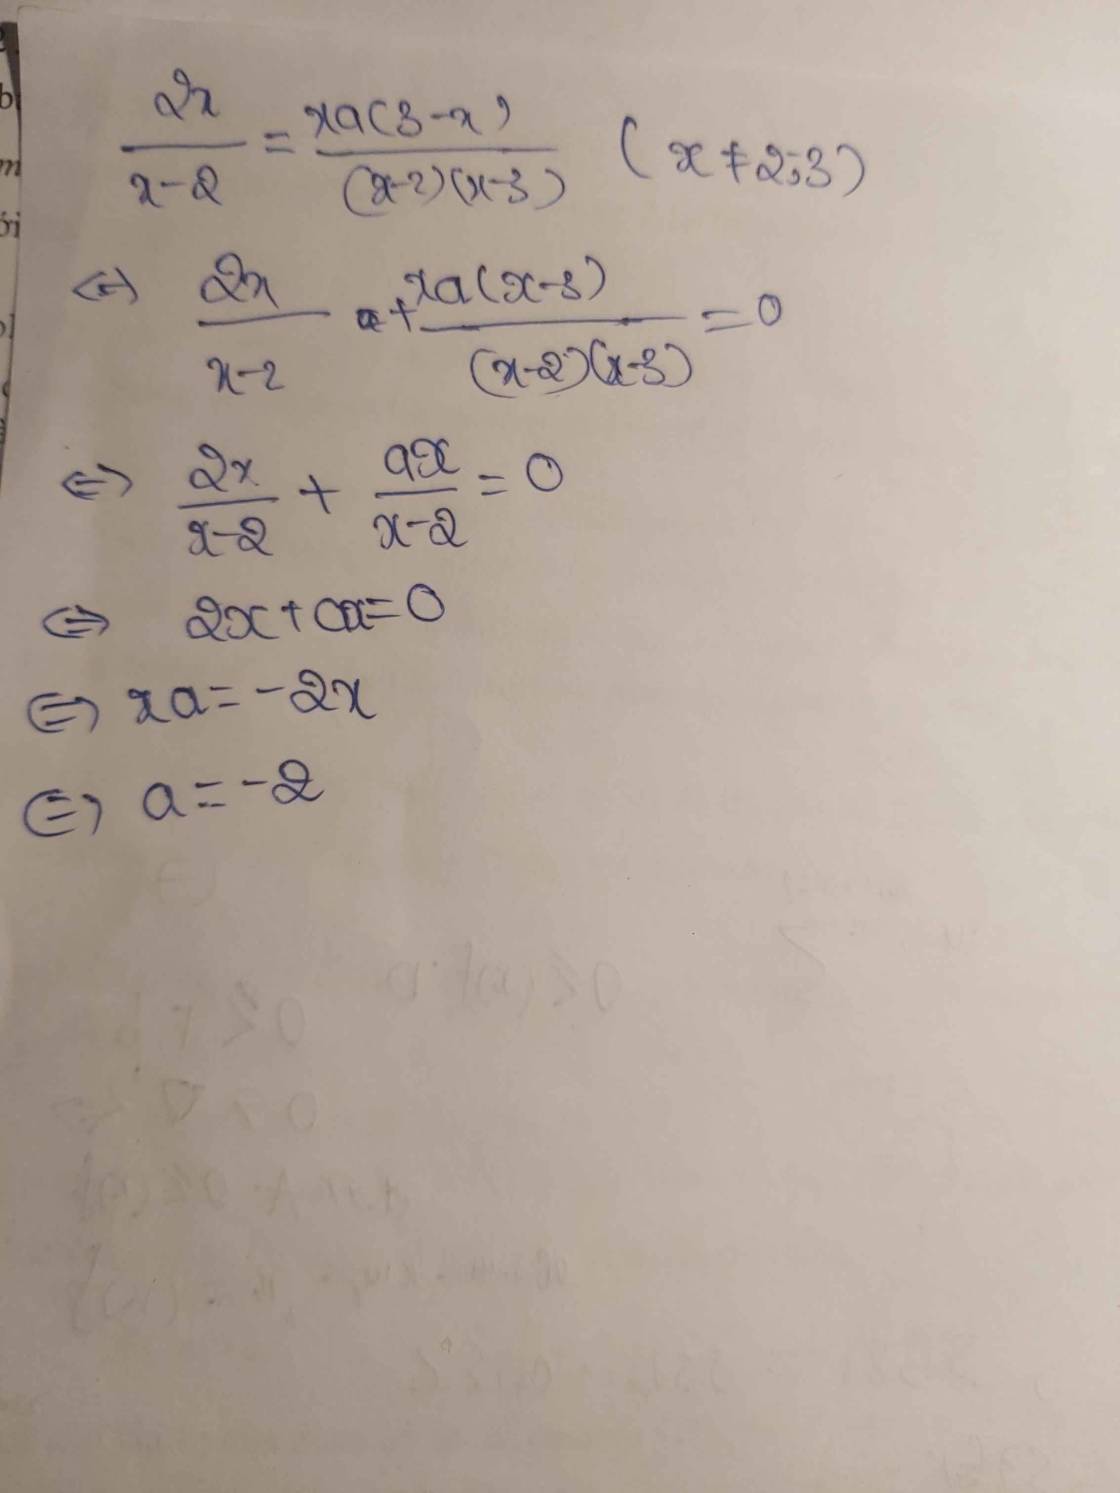 2x/(x-2) = xa(3-x)/((x-2)(x-3)) (x ≠ 2;3)
⇔ 2x/(x-2) + xa(x-3)/((x-2)(x-3)) = 0
⇔ 2x/(x-2) + ax/(x-2) = 0
⇔ 2x + ax = 0
⇔ xa = -2x
⇔ a = -2